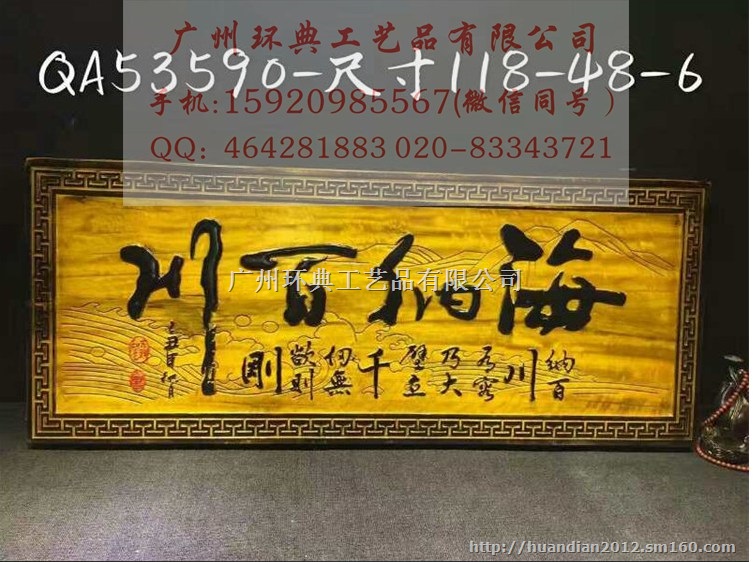 广州环典工艺品有限公司
QA53590-尺寸118-48-6
手机:15920985567(微信同号)
QQ: 464281883 020-83343721
海納百川
广州环典工艺品有限公司
納百
川
有容
乃大
壁立
千
仞無
欲則
剛
http://huandian2012.sm160.com